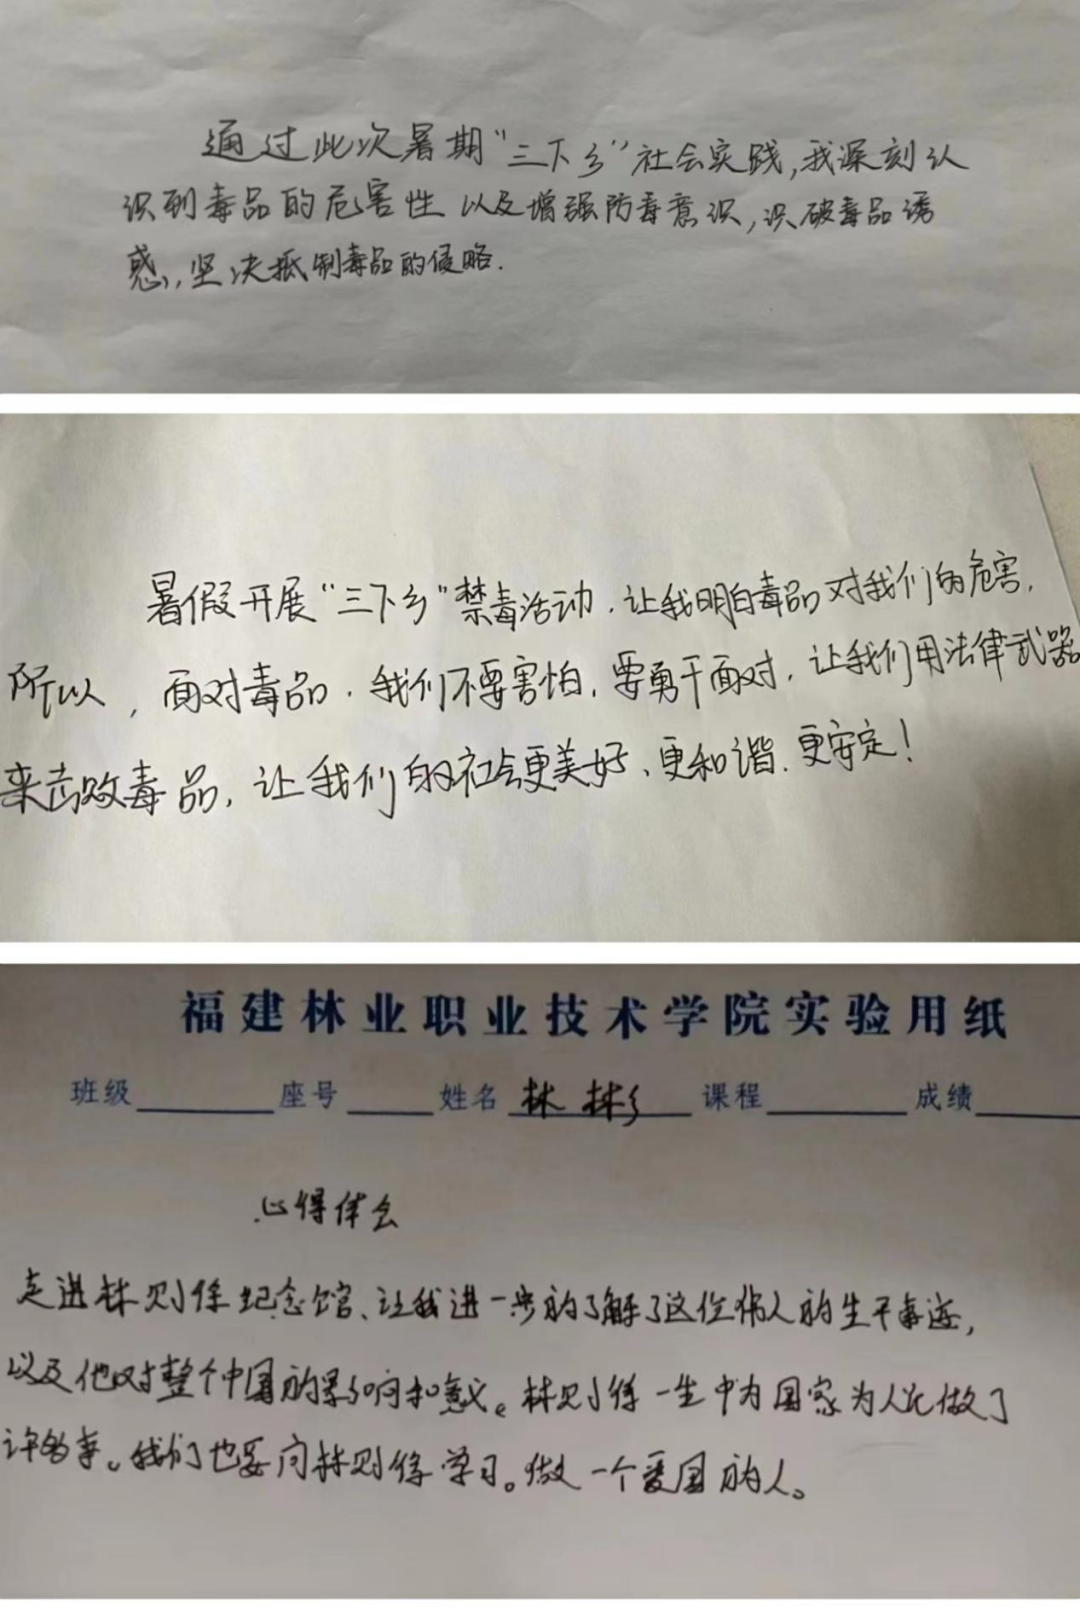 通过此次暑期“三下乡”社会实践,我深刻认
识到毒品的危害性 以及增强防毒意识,识破毒品诱
惑,坚决抵制毒品的侵略.
暑假开展“三下乡”禁毒活动,让我明白毒品对我们的危害,
所以,面对毒品,我们不要害怕,要勇于面对,让我们用法律武器
来击败毒品,让我们的社会更美好、更和谐、更安定!
福建林业职业技术学院实验用纸
班级 座号 姓名 林彬 课程 成绩
心得体会
走进林则徐纪念馆、让我进一步的了解了这位伟人的生平事迹,
以及他对整个中国的影响和意义。林则徐一生中为国家为人民做了
许多事。我们也要向林则徐学习。做一个爱国的人。